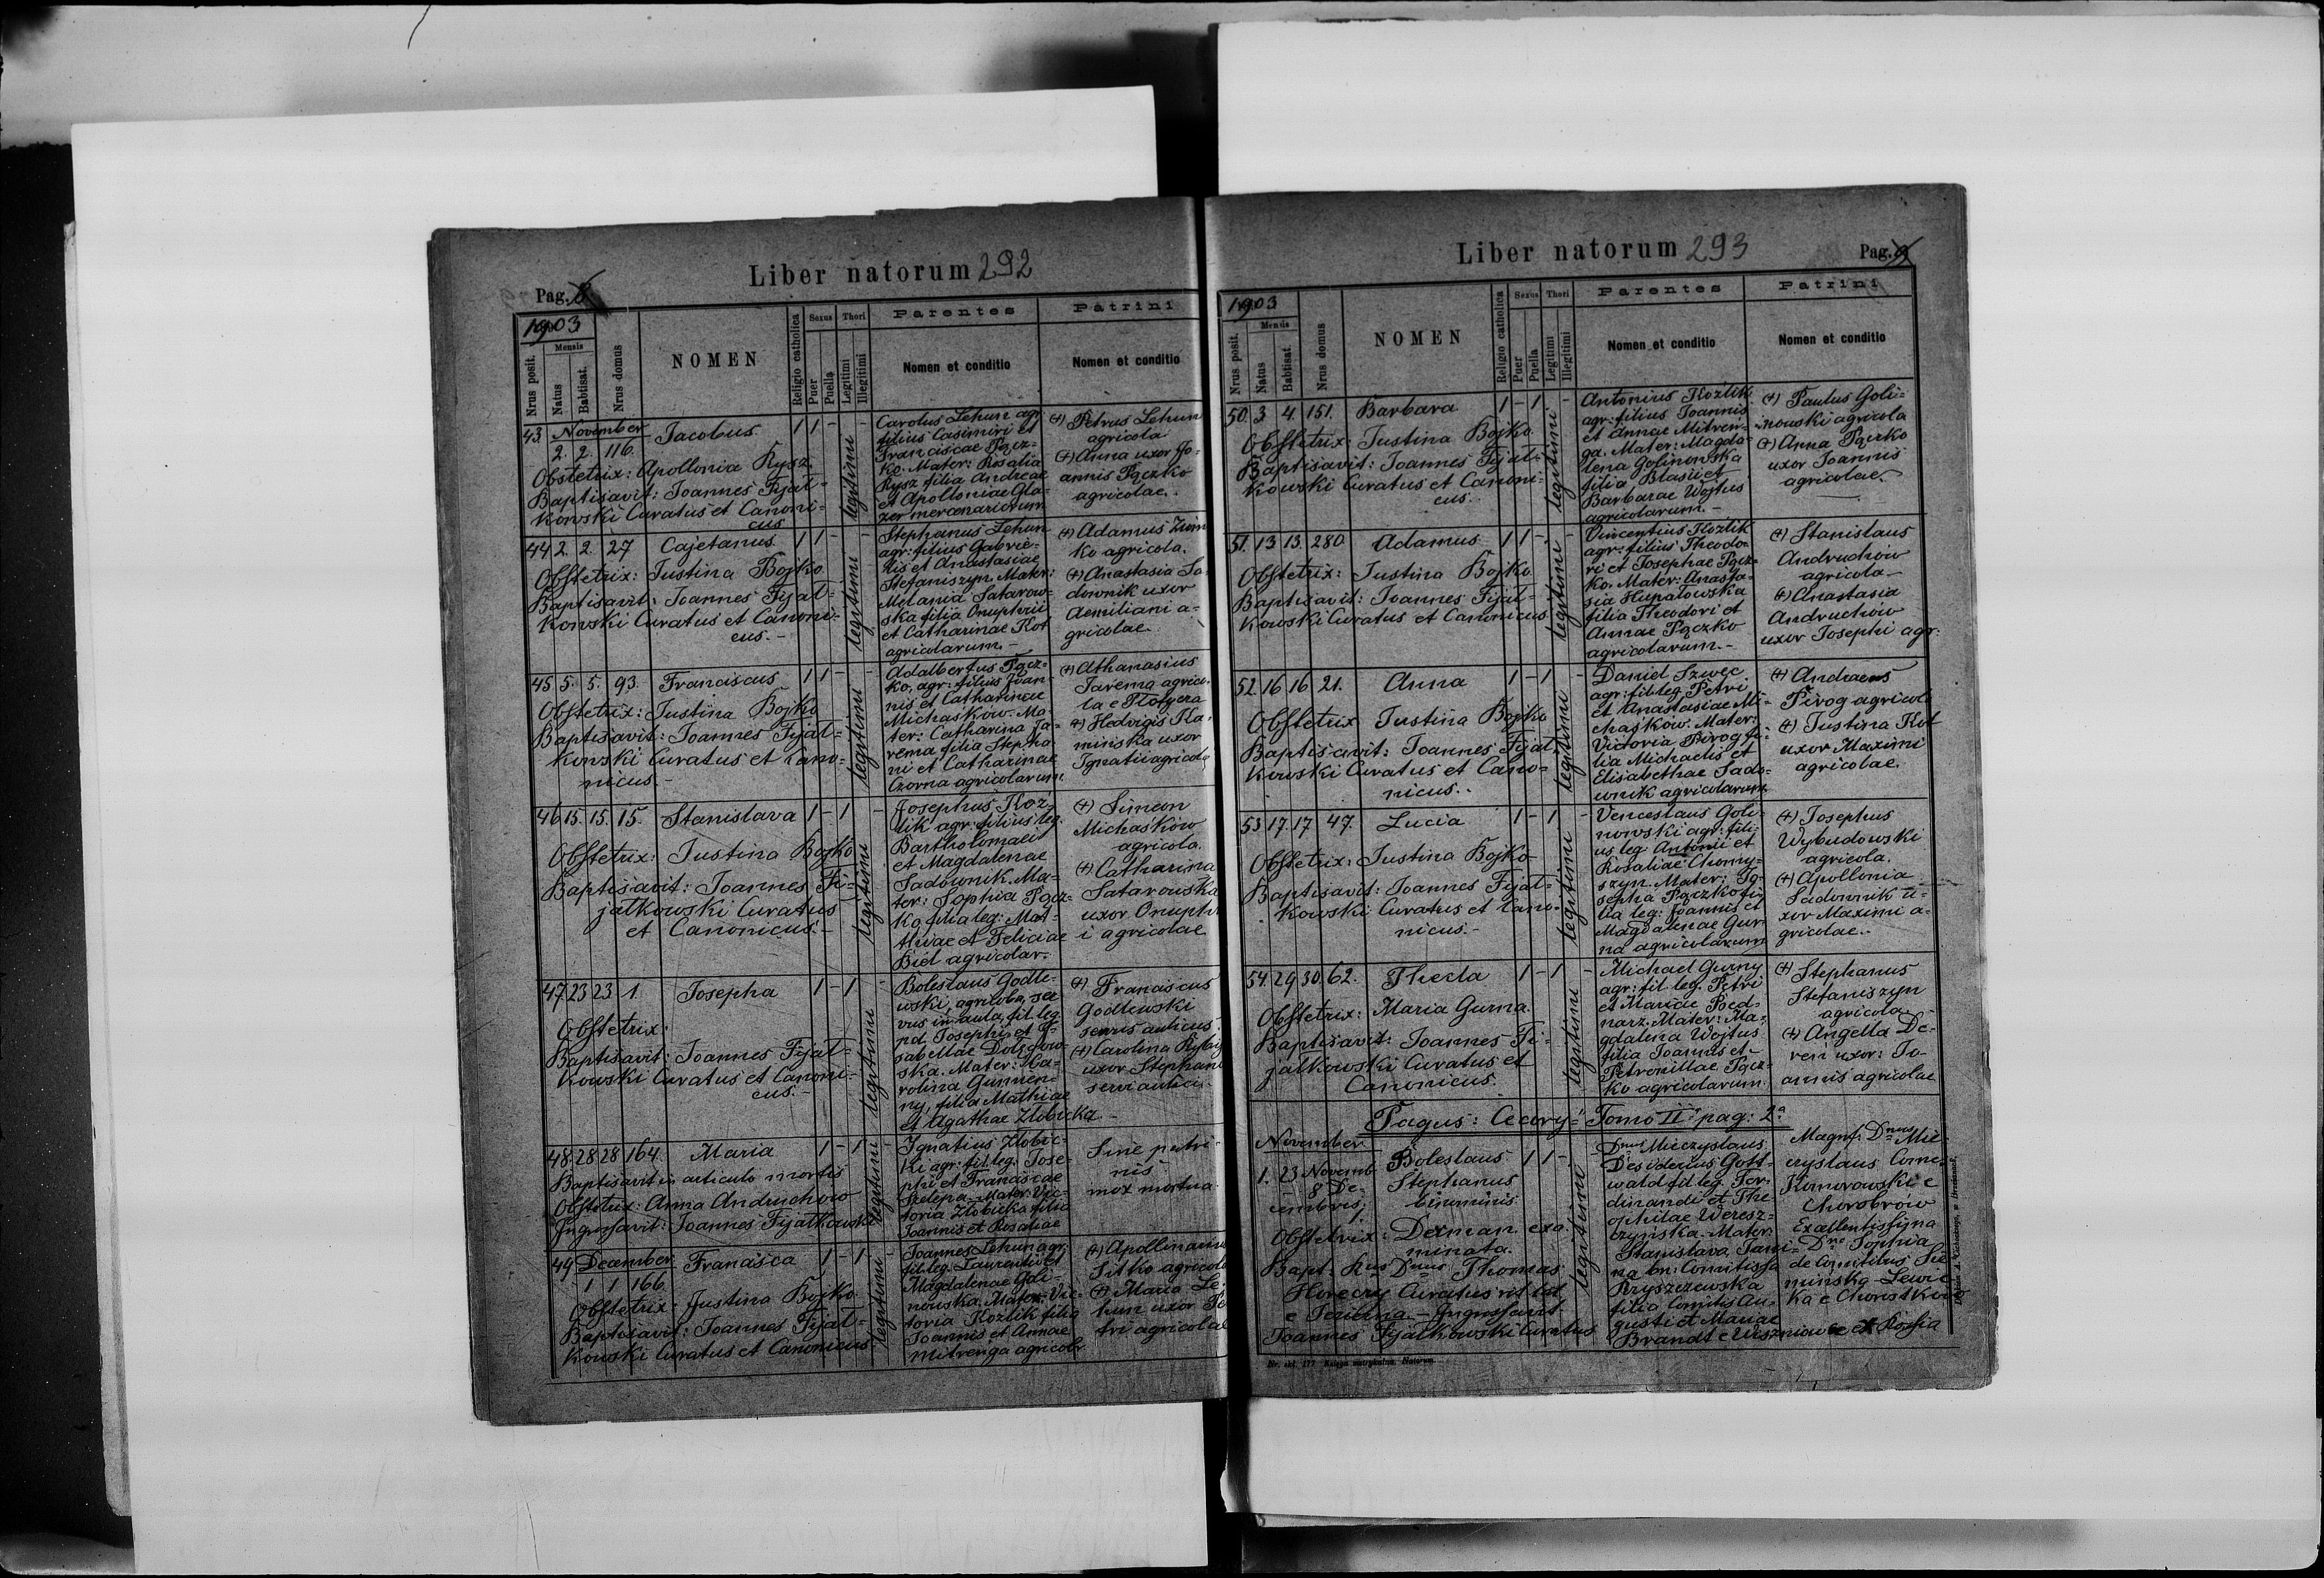 Liber natorum 292
Pag. 8
1903
Nrus posit.
Mensis
Natus
Babtisat.
Nrus domus
NOMEN
Religio catholica
Sexus
Puer
Puella
Thori
Legitimi
Illegitimi
Parentes
Nomen et conditio
Patrini
Nomen et conditio
43. November Jacobus 1 1 - legitimi -
2. 2. 116.
Obstetrix: Apollonia Rysz
Baptisavit: Joannes Fijał=
kowski Curatus et Canoni=
cus
Carolus Lehun agr.
filius Casimiri et
Franciscae Pącz=
ko. Mater: Rosalia
Rysz filia Andreae
et Apolloniae Gla=
zer mercenariorum
(+) Petrus Lehun
agricola
(+) Anna uxor Jo=
annis Pączko
agricolae.
44 2. 2. 27 Cajetanus 1 1 - legitimi -
Obstetrix: Justina Bojko
Baptisavit: Joannes Fijał=
kowski Curatus et Canoni=
cus.-
Stephanus Lehun
agr: filius Gabrie=
lis et Anastasiae
Stefaniszyn. Mater:
Melania Satarow=
ska filia Onuphrii
et Catharinae Kot
agricolarum.-
(+) Adamus
ko agricola.
(+) Anastasia Sa=
downik uxor
Aemiliani a=
gricolae.
45 5. 5. 93. Franciscus 1 1 - legitimi -
Obstetrix: Justina Bojko
Baptisavit: Joannes Fijał=
kowski Curatus et Cano=
nicus.-
Adalbertus Pącz=
ko, agr: filius Joan=
nis et Catharinae
Michaśków. Ma=
ter: Catharina Ja=
rema filia Stepha
ni et Catharinae
Czorna agricolarum
(+) Athanasius
Jarema agrico=
la e
(+) Hedvigis Ka=
mińska uxor
Ignatii agricola
46 15. 15. 15. Stanislava 1 - 1 legitimi -
Obstetrix: Justina Bojko
Baptisavit: Joannes Fi=
jałkowski Curatus
et Canonicus.-
Josephus Koz=
lik agr: filius leg.
Bartholomaei
et Magdalenae
Sadownik. Ma=
ter: Sophia Pącz=
ko filia leg: Mat=
thiae et Feliciae
Biel agricolar.-
(+) Simeon
Michaśków
agricola.
(+) Catharina
Satarowska
uxor Onuphr
i agricolae
47 23 23 1. Josepha 1 - 1 legitimi -
Obstetrix:
Baptisavit: Joannes Fijał=
kowski Curatus et Canoni=
cus.-
Boleslaus Godle=
wski, agricola, ser
vus in aula, fil. leg
pd. Josephi et
sabellae Dołęgow=
ska. Mater: Ca=
rolina Gumien=
ny, filia Mathiae
et Agathae Złobicka.-
(+) Franciscus
Godlewski
servus aulicus.
(+) Carolina
uxor Stephani
servi aulici.-
48 28 28 164. Maria 1 - 1 legitimi -
Baptisavit in articulo mortis
Obstetrix: Anna Andruchow
Ingrossavit: Joannes Fijałkowski
Ignatius Złobic=
ki agr: fil. leg. Jose=
phi et Franciscae
Szelepa. Mater: Vic=
toria Złobicka filia
Joannis et Rosaliae
Sine patri=
nis
mox mortua
49 December Francisca 1 - 1 legitimi -
1 1 166
Obstetrix: Justina Bojko
Baptisavit: Joannes Fijał=
kowski Curatus et Canonicus
Joannes Lehun agr:
fil. leg. Laurentii et
Magdalenae Goli=
nowska. Mater: Vic=
toria Kozlik filia
Joannis et Annae
Mitrenga agricolr
(+) Apollinarius
Sitko agricola
(+) Maria Le=
hun uxor Pe
tri agricolae
Liber natorum 293
Pag. 9
1903
Nrus posit.
Mensis
Natus
Babtisat.
Nrus domus
NOMEN
Religio catholica
Sexus
Puer
Puella
Thori
Legitimi
Illegitimi
Parentes
Nomen et conditio
Patrini
Nomen et conditio
50. 3 4. 151. Barbara 1 - 1 legitimi -
Obstetrix: Justina Bojko
Baptisavit: Joannes Fijał=
kowski Curatus et Canoni=
cus.-
Antonius Kozlik
agr: filius Joannis
et Annae Mitren=
ga. Mater: Magda=
lena Golinowska
filia Blasii et
Barbarae Wojtus
agricolarum.-
(+) Paulus Goli=
nowski agricola
(+) Anna Pączko
uxor Joannis
agricolae.
51. 13 13. 280. Adamus 1 1 - legitimi -
Obstetrix: Justina Bojko
Baptisavit: Joannes Fijał=
kowski Curatus et Canonicus
Vincentius Kozlik
agr: filius Theodo=
ri et Josephae Pącz=
ko. Mater: Anasta=
sia Hupałowska
filia Theodori et
Annae Pączko
agricolarum.-
(+) Stanislaus
Andruchow
agricola-
(+) Anastasia
Andruchów
uxor Josephi agr:
52. 16 16 21. Anna 1 - 1 legitimi -
Obstetrix Justina Bojko
Baptisavit: Joannes Fijał=
kowski Curatus et Cano=
nicus.-
Daniel Szwec
agr: fil. leg. Petri
et Anastasiae Mi=
chaśków. Mater:
Victoria Pirog fi=
lia Michaelis et
Elisabethae Sado=
wnik agricolarum
(+) Andraeas
Pirog agricola
(+) Justina Kot
uxor Maximi
agricolae.
53 17. 17 47. Lucia 1 - 1 legitimi -
Obstetrix: Justina Bojko
Baptisavit: Joannes Fijał=
kowski Curatus et Cano=
nicus.-
Venceslaus Goli=
nowski agr: fili=
us leg: Antonii et
Rosaliae Chomy=
szyn. Mater: Jo=
sepha Pączko fi=
lia leg: Joannis et
Magdalenae Gur
na agricolarum
(+) Josephus
Wybudowski
agricola.
(+) Apollonia
Sadownik u=
xor Maximi a=
gricolae.-
54. 29 30. 62. Thecla 1 - 1 legitimi -
Obstetrix: Maria Gurna.
Baptisavit: Joannes Fi=
jałkowski Curatus et
Canonicus.
Michael Gurny
agr: fil. leg. Petri
et Mariae Bed=
narz. Mater: Ma=
gdalena Wojtus
filia Joannis et
Petronillae Pącz=
ko agricolarum.
(+) Stephanus
Stefaniszyn
agricola.-
(+) Angella De=
reń uxor: Jo=
annis agricolae
Pagus: Cecory= Tomo II= pag: 2ª
November
1. 23 Novemb Boleslaus 1 1 - legitimi -
- 8 De=
cembris; Stephanus
binominis
Obstetrix: Dexman exa=
minata.
Bapt. Rus Dnus Thomas
Horeczy Curatus rit lat
e - Ingrossavit
Joannes Fijałkowski Curatus
Dnus Mieczyslaus
Desiderius Gott=
wald fil leg. Fer=
dinandi et The=
ophilae Weresz=
czyńska. Mater:
Stanislava Jani=
na bn: Comitissa
Ryszczewska
filia Comitis Au=
gusti et Mariae
Brandt e Wiszniowce ex Rossia
Magnf. Dnus Mie=
czyslaus Comes
Komorowski e
Chorobrów
Excellentissima
Dna Sophia
de Comitibus Sie
mińska-Lewic
ka e Chorostków
Nr. skl. 177. Księga metrykalna. Natorum.